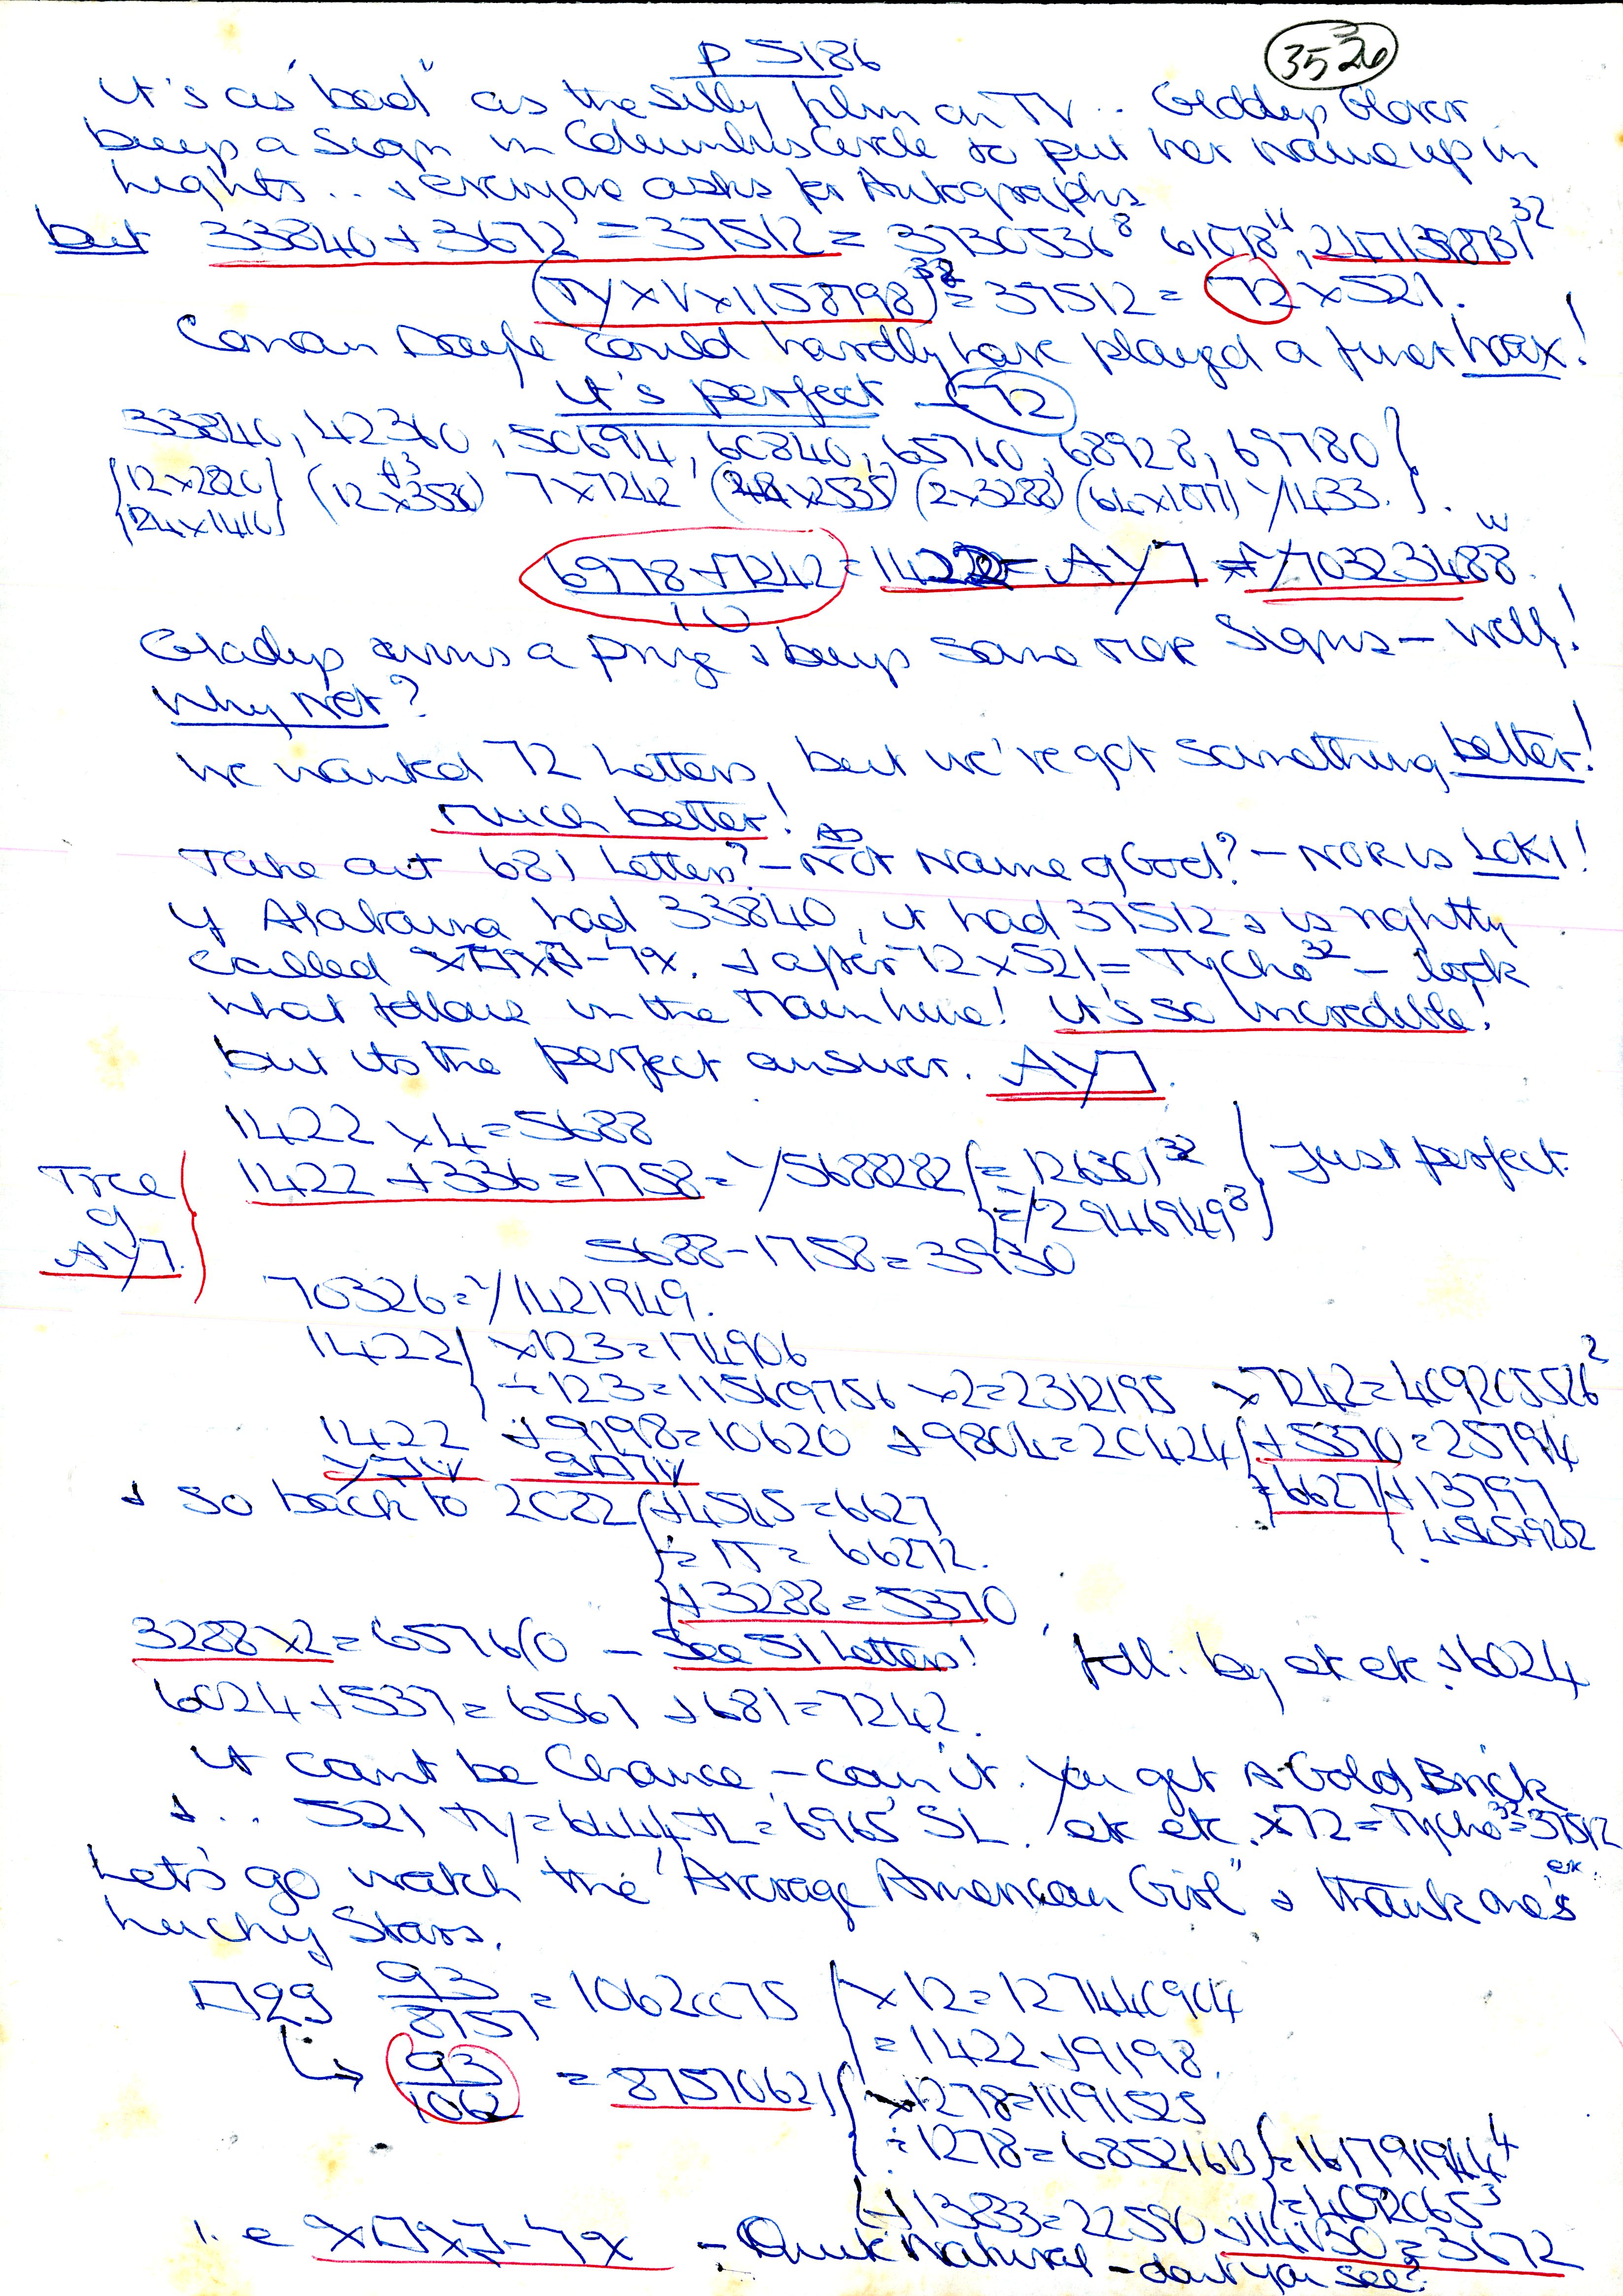 p 5186
3526
It's as "bad" as the silly film on TV.. Gladys Glover
buys a Sign in Columbus Circle to put her name up in
lights.. & everyone asks for Autographs
but 33840 + 3672 = 37512 = 3730536⁸ 61078⁴, 247135873³²
(Ty x V x 1158798)³² = 37512 = 72 x 521.
Conan Doyle could hardly have played a finer hoax!
It's perfect - 72
33840, 42360, 50694, 60840, 65760, 68928, 69780
(12x2820) (12x3530) 7x7242 (24x2535) (2x3288) (64x1077) √1433.
(24x1410)
6978 + 7242 = 1422 = AY7 = √70323488
10
Gladys wins a prize & buys some more Signs - Well!
Why Not?
We wanted 72 Letters, but we've got something better!
much better!
Take out 681 Letters? - Not Name of God? - Nor is LOKI!
If Alabama had 33840, it had 37512 & is rightly
called & after 72x521 = Tycho³² - look
what follows in the Main line! It's so incredible!
but its the perfect answer. AY7.
1422 x 4 = 5688
Tree of AY7. 1422 + 336 = 1758 = √5688282 = 126301³² Just perfect.
= 2946949³
5688 - 1758 = 3930
70326 = √1421949.
1422 x 123 = 174906
÷ 123 = 115609756 x2 = 2312195 x 7242 = 409205526²
1422 + 9198 = 10620 + 9804 = 20424 + 5370 = 25794
& so back to 2082 + 4545 = 6627 = 6627 + 13797
÷ π = 66272. 4545+9252
+ 3288 = 5370
3288 x 2 = 6576(0 - See 51 Letters! foll: by etc etc. & 6024
6024 + 537 = 6561 & 681 = 7242.
It can't be Chance, - can it. You get A Gold Brick
&.. 521 Ty = 6444 JL = 6965 SL. etc etc. x72 = Tycho³² = 37512
etc.
Let's go watch the "Average American Girl" & thank one's
Lucky Stars.
93/8757 = 10620075 x 12 = 127440904
= 1422 + 9198.
93/1062 = 87570621 x 1278 = 11191525
÷ 1278 = 68521613 = 161791944⁴
= 4092065³
+ 13833 = 22590 + 14130 = 3672
i.e - Quite Natural - don't you see?